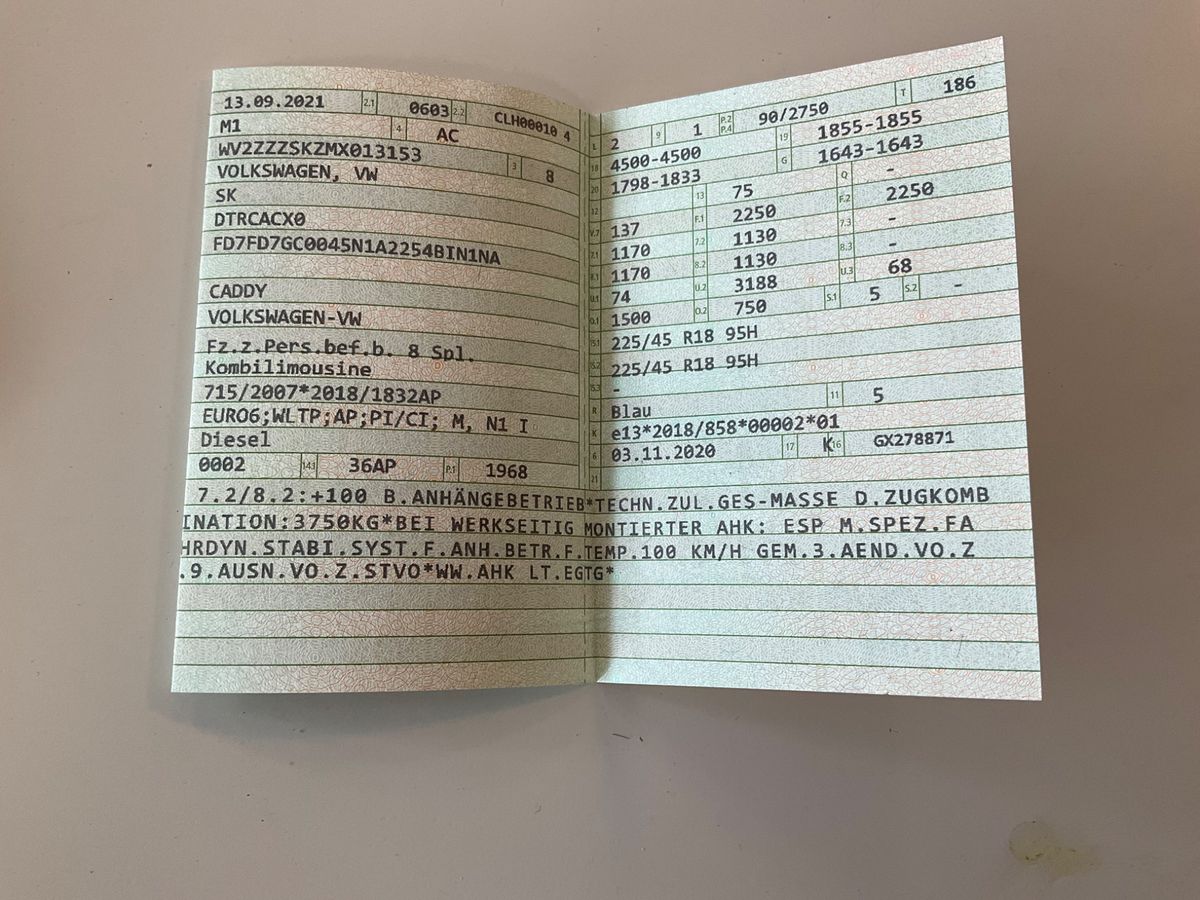 13.09.2021 2.1 0603 2.2 CLH00010 4
M1 4 AC
WV2ZZZSKZMX013153 3 8
VOLKSWAGEN, VW
SK
DTRCACX0
FD7FD7GC0045N1A2254BIN1NA
CADDY
VOLKSWAGEN-VW
Fz.z.Pers.bef.b. 8 Spl.
Kombilimousine
715/2007*2018/1832AP
EURO6;WLTP;AP;PI/CI; M, N1 I
Diesel
0002 14.1 36AP P.1 1968
L 2 9 1 P.2 P.4 90/2750 T 186
18 4500-4500 19 1855-1855
20 1798-1833 G 1643-1643
12 13 75 Q -
V.7 137 F.1 2250 F.2 2250
7.1 1170 7.2 1130 7.3 -
8.1 1170 8.2 1130 8.3 -
U.1 74 U.2 3188 U.3 68
O.1 1500 O.2 750 S.1 5 S.2 -
15.1 225/45 R18 95H
15.2 225/45 R18 95H
15.3 -
R Blau 11 5
K e13*2018/858*00002*01
6 03.11.2020 17 K 16 GX278871
21
7.2/8.2:+100 B.ANHÄNGEBETRIEB*TECHN.ZUL.GES-MASSE D.ZUGKOMB
INATION:3750KG*BEI WERKSEITIG MONTIERTER AHK: ESP M.SPEZ.FA
HRDYN.STABI.SYST.F.ANH.BETR.F.TEMP.100 KM/H GEM.3.AEND.VO.Z
.9.AUSN.VO.Z.STVO*WW.AHK LT.EGTG*